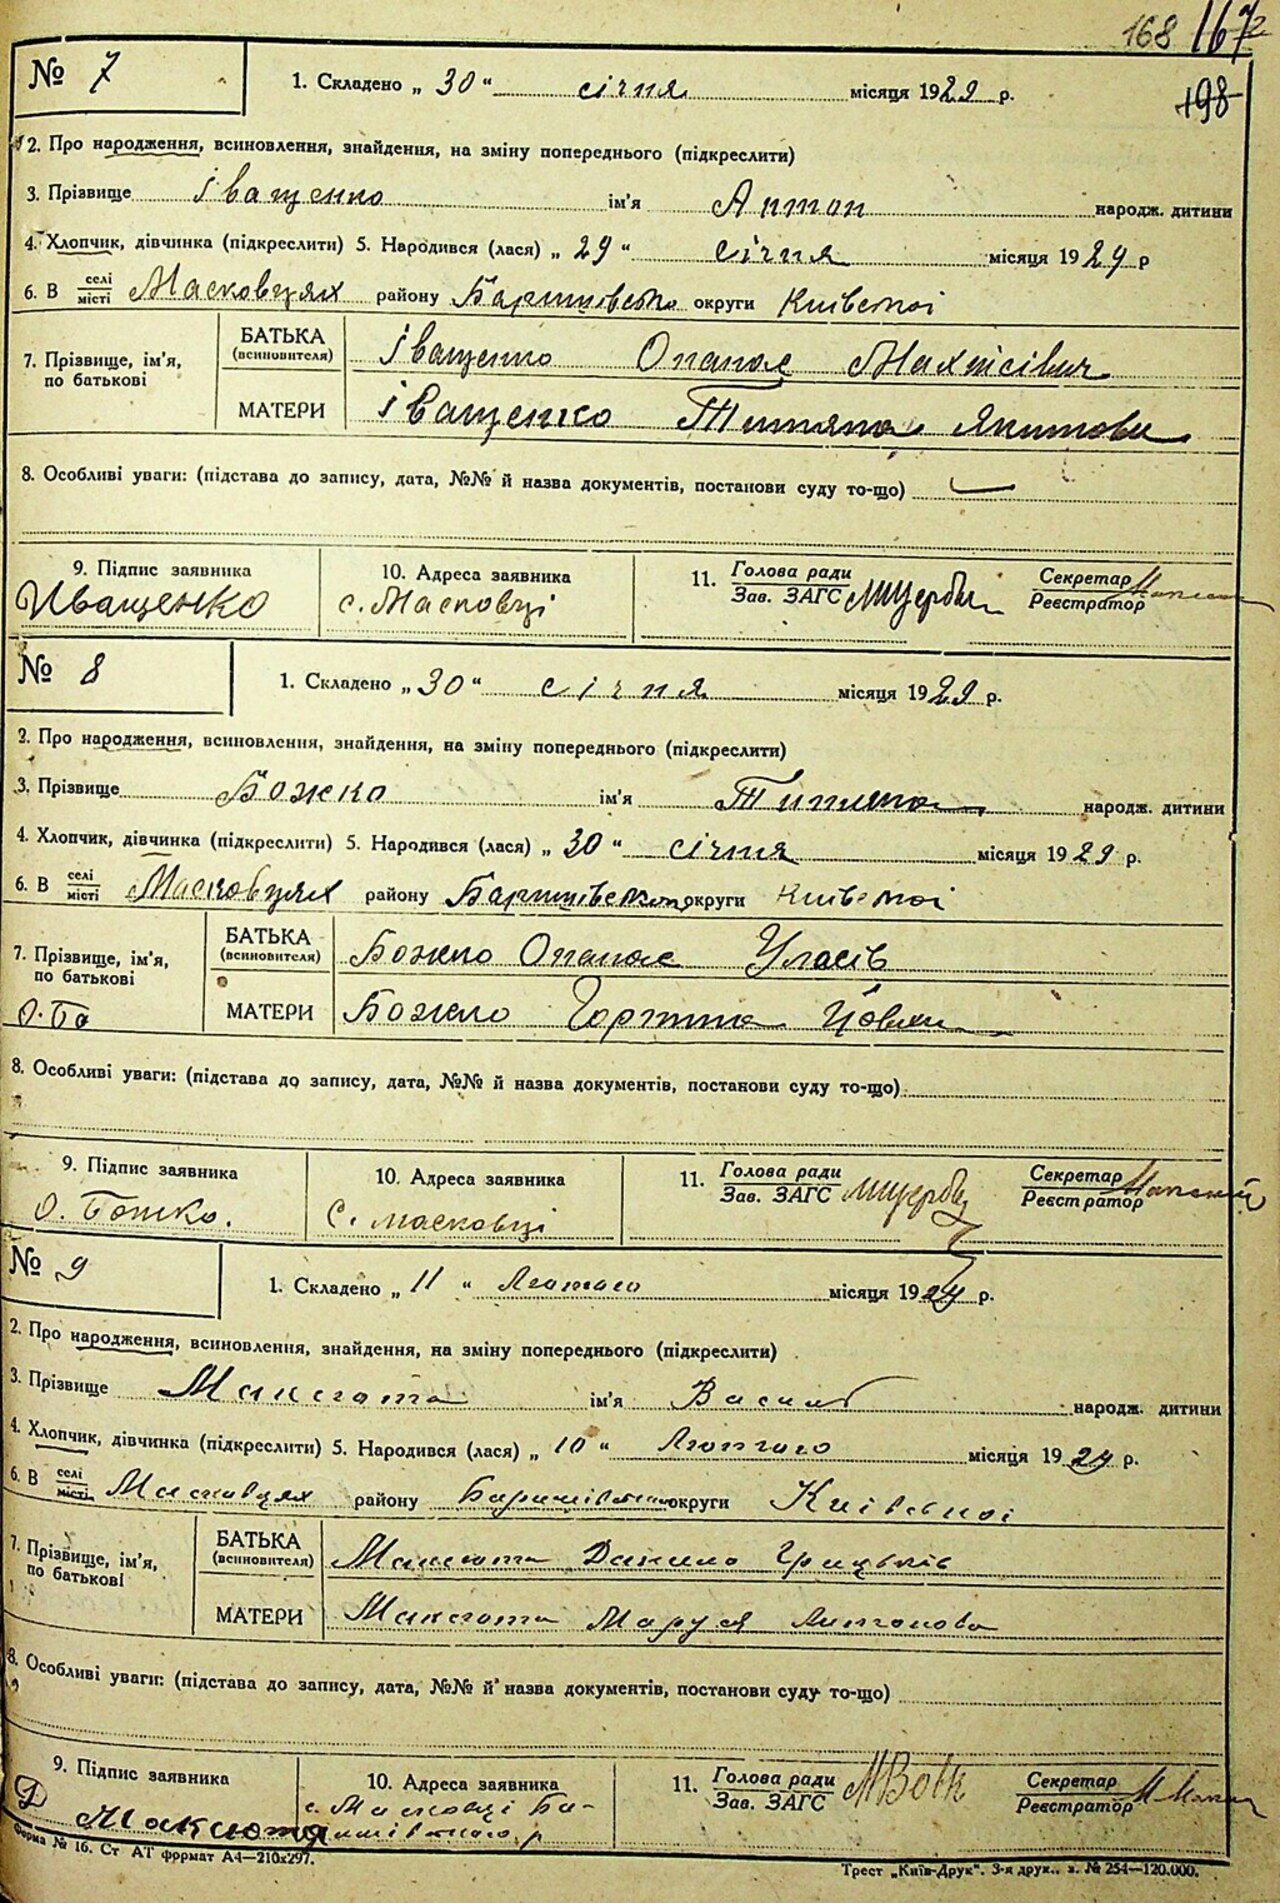 168 167
198
№ 7 1. Складено „ 30 “ січня місяця 1929 р.
2. Про народження, всиновлення, знайдення, на зміну попереднього (підкреслити)
3. Прізвище Іващенко ім'я Антон народж. дитини
4. Хлопчик, дівчинка (підкреслити) 5. Народився (лася) „ 29 “ січня місяця 1929 р
6. В селі місті Масковцях району Баришівсько округи Київської
7. Прізвище, ім'я, по батькові
БАТЬКА (всиновителя) Іващенко Опанас
МАТЕРИ Іващенко Титяна Якимови
8. Особливі уваги: (підстава до запису, дата, №№ й назва документів, постанови суду то-що)
9. Підпис заявника 10. Адреса заявника 11. Голова ради Зав. ЗАГС Секретар Реєстратор
Иващенко с. Масковці
№ 8 1. Складено „ 30 “ січня місяця 1929 р.
2. Про народження, всиновлення, знайдення, на зміну попереднього (підкреслити)
3. Прізвище Божко ім'я Титяна народж. дитини
4. Хлопчик, дівчинка (підкреслити) 5. Народився (лася) „ 30 “ січня місяця 1929 р.
6. В селі місті Масковцях району Баришівського округи Київської
7. Прізвище, ім'я, по батькові
О. Бо
БАТЬКА (всиновителя) Божко Опанас Уласів
МАТЕРИ Божко Горпина
8. Особливі уваги: (підстава до запису, дата, №№ й назва документів, постанови суду то-що)
9. Підпис заявника 10. Адреса заявника 11. Голова ради Зав. ЗАГС Секретар Реєстратор
О. Божко. с. Масковці
№ 9 1. Складено „ 11 “ Лютого місяця 1929 р.
2. Про народження, всиновлення, знайдення, на зміну попереднього (підкреслити)
3. Прізвище Максюта ім'я Василь народж. дитини
4. Хлопчик, дівчинка (підкреслити) 5. Народився (лася) „ 10 “ Лютого місяця 1929 р.
6. В селі місті Масковцях району округи Київської
7. Прізвище, ім'я, по батькові
БАТЬКА (всиновителя) Максюта Данило Грицьків
МАТЕРИ Максюта Маруся Антонова
8. Особливі уваги: (підстава до запису, дата, №№ й назва документів, постанови суду то-що)
9. Підпис заявника 10. Адреса заявника 11. Голова ради Зав. ЗАГС Секретар Реєстратор
Максюта с. Масковці Ба-
Форма № 16. Ст АТ формат А4—210х297.
Трест „Київ-Друк“. 3-я друк., з. № 254—120.000.